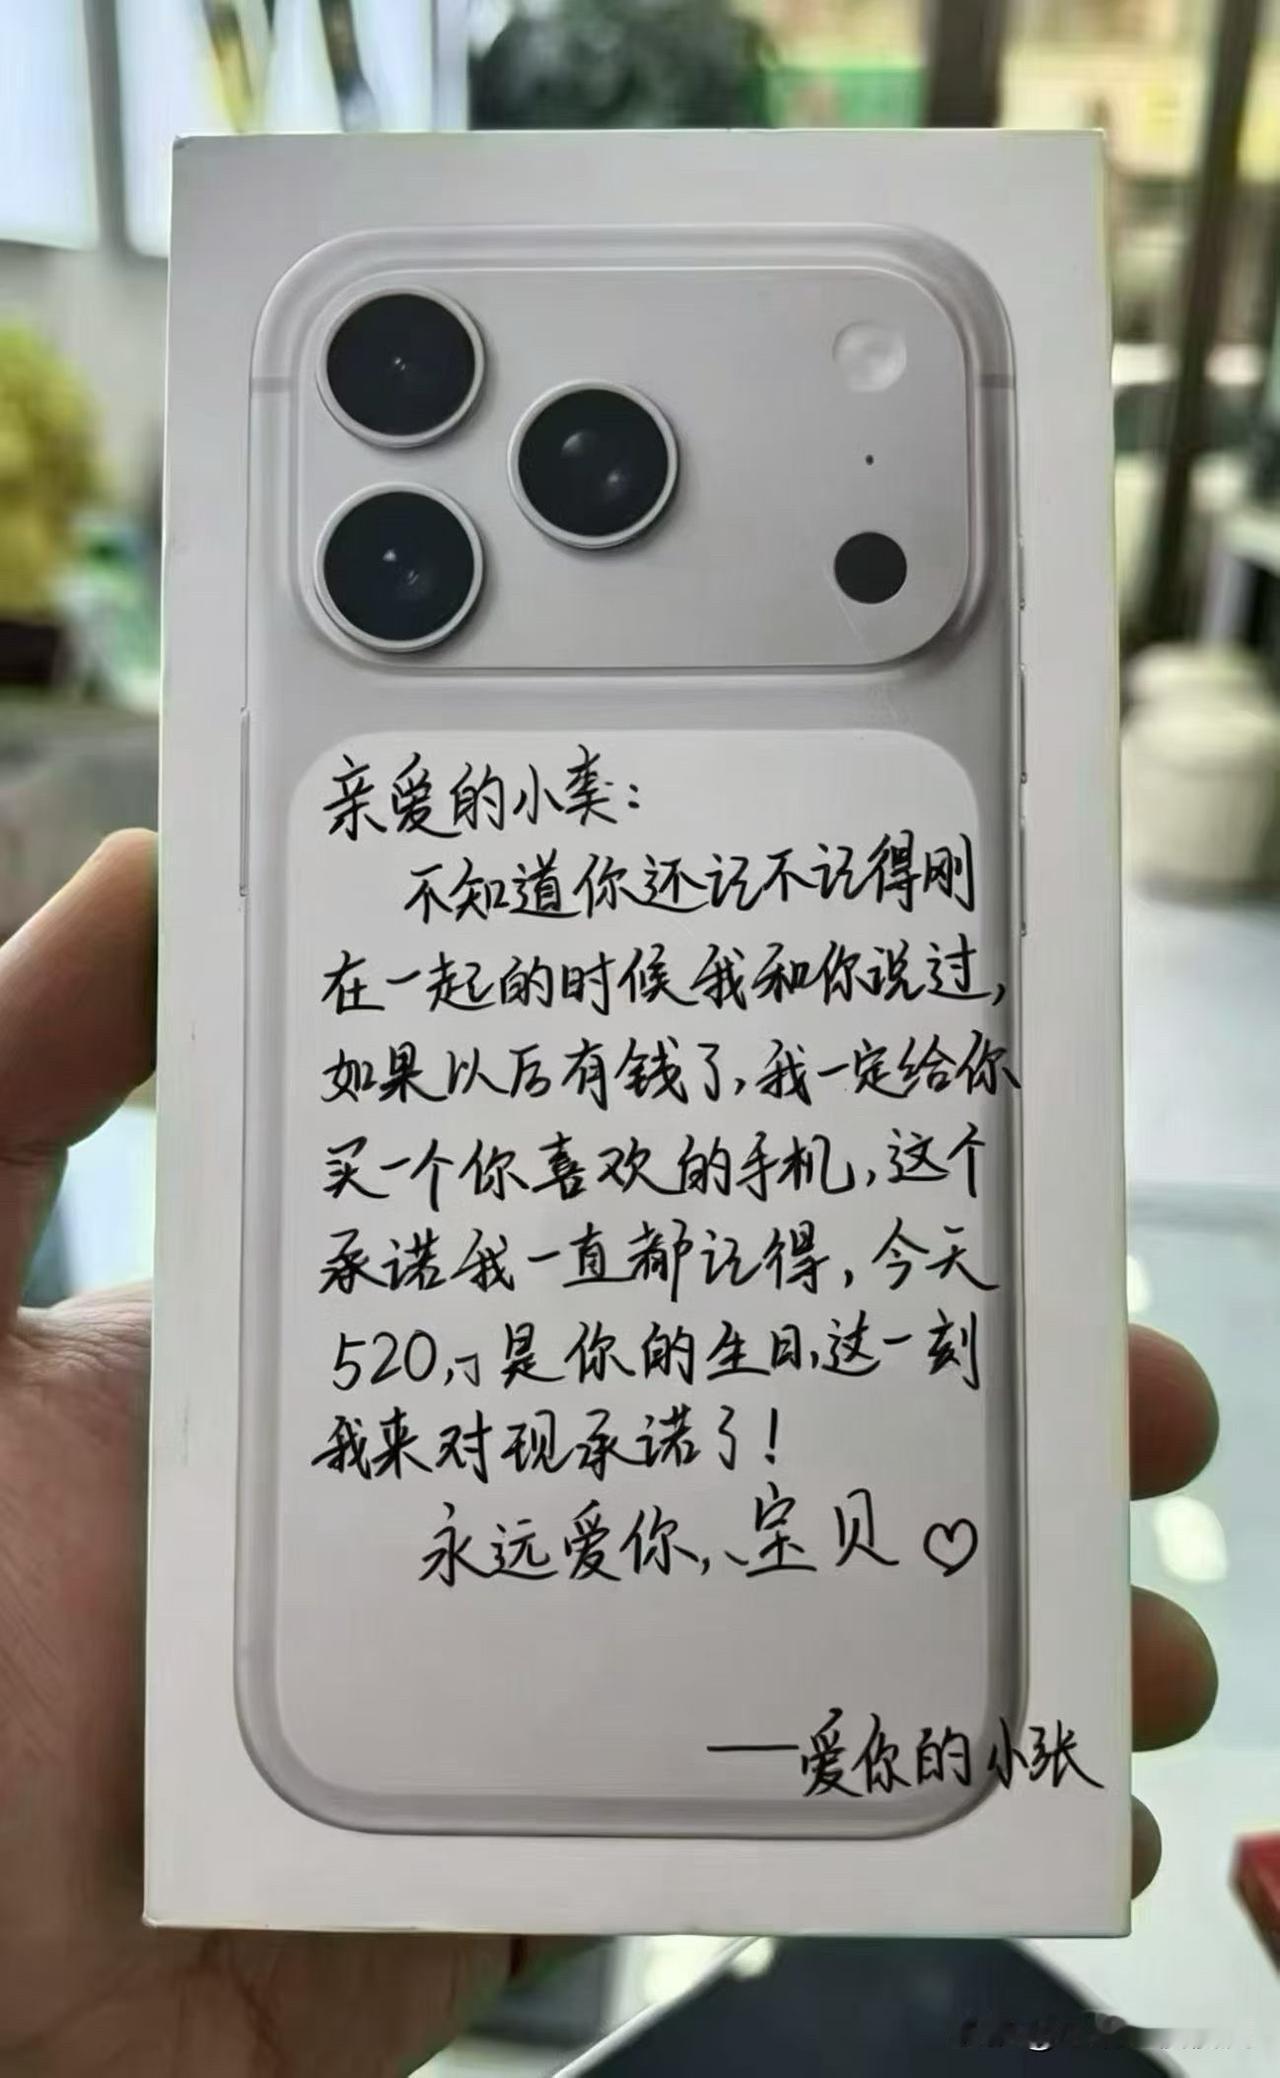 亲爱的小：
不知道你还记不记得刚
在一起的时候我和你说过,
如果以后有钱了,我一定给你
买一个你喜欢的手机,这个
承诺我一直都记得,今天
520,是你的生日,这一刻
我来对现承诺了!
永远爱你,宝贝♡
——爱你的小张